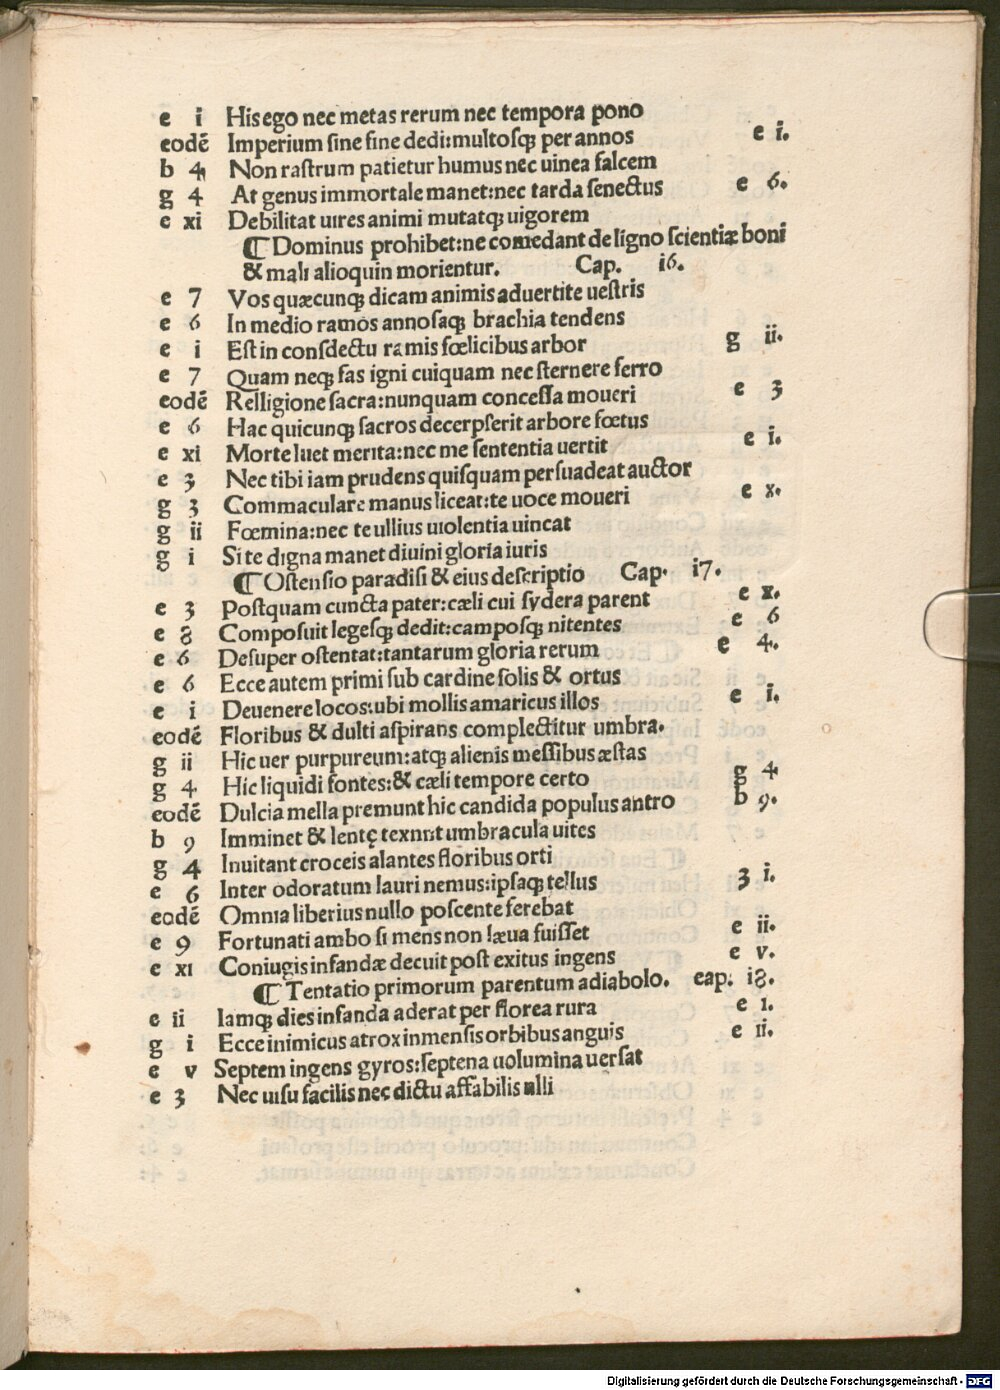 e i His ego nec metas rerum nec tempora pono
eodē Imperium sine fine dedi:multosqꝫ per annos e i.
b 4 Non rastrum patietur humus nec uinea falcem
g 4 At genus immortale manet:nec tarda senectus e 6.
e xi Debilitat uires animi mutatqꝫ uigorem
¶ Dominus prohibet:ne comedant de ligno scientiæ boni
& mali alioquin morientur. Cap. i6.
e 7 Vos quæcunqꝫ dicam animis aduertite uestris
e 6 In medio ramos annosaqꝫ brachia tendens
e i Est in consdectu ramis fœlicibus arbor g ii.
e 7 Quam neqꝫ fas igni cuiquam nec sternere ferro
eodē Relligione sacra:nunquam concessa moueri e 3
e 6 Hac quicunqꝫ sacros decerpserit arbore fœtus
e xi Morte luet merita:nec me sententia uertit e i.
e 3 Nec tibi iam prudens quisquam persuadeat auctor
g 3 Commaculare manus liceat:te uoce moueri e x.
g ii Fœmina:nec te ullius uiolentia uincat
g i Si te digna manet diuini gloria iuris
¶ Ostensio paradisi & eius descriptio Cap. i7.
e 3 Postquam cuncta pater:cæli cui sydera parent e x.
e 8 Composuit legesqꝫ dedit:camposqꝫ nitentes e 6
e 6 Desuper ostentat:tantarum gloria rerum e 4.
e 6 Ecce autem primi sub cardine solis & ortus
e i Deuenere locos:ubi mollis amaricus illos e i.
eodē Floribus & dulti aspirans complectitur umbra.
g ii Hic uer purpureum:atqꝫ alienis messibus æstas
g 4 Hic liquidi fontes:& cæli tempore certo g 4
eodē Dulcia mella premunt hic candida populus antro b 9.
b 9 Imminet & lentę texnnt umbracula uites
g 4 Inuitant croceis alantes floribus orti
e 6 Inter odoratum lauri nemus:ipsaqꝫ tellus 3 i.
eodē Omnia liberius nullo poscente ferebat
e 9 Fortunati ambo si mens non læua fuisset e ii.
e xi Coniugis infandæ decuit post exitus ingens e v.
¶ Tentatio primorum parentum adiabolo. eap. i8.
e ii Iamqꝫ dies infanda aderat per florea rura e i.
g i Ecce inimicus atrox inmensis orbibus anguis e ii.
e v Septem ingens gyros:septena uolumina uersat
e 3 Nec uisu facilis nec dictu affabilis ulli
Digitalisierung gefördert durch die Deutsche Forschungsgemeinschaft - DFG